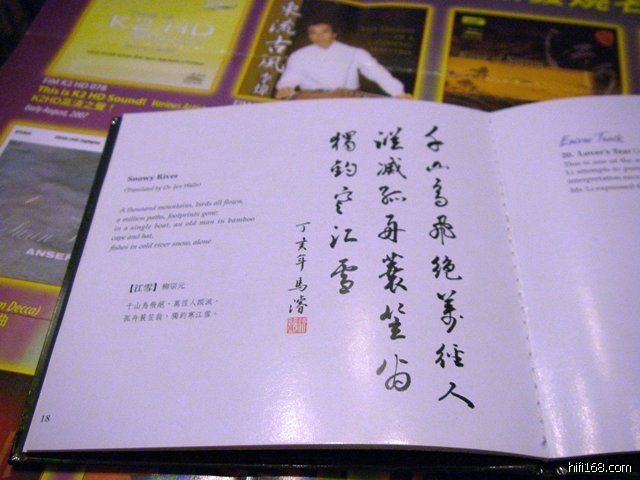 K2 HD
東流古風
李煒
FIM K2 HD 078
This is K2 HD Sound!
K2HD高清之聲!
Early August, 2007
曲
Snowy River
(Translated by Dr. Jan Walls)
A thousand mountains, birds all flown,
a million paths, footprints gone;
in a single boat, an old man in bamboo
cape and hat,
fishes in cold river snow, alone
【江雪】柳宗元
千山鳥飛絕，萬徑人蹤滅。
孤舟簑笠翁，獨釣寒江雪。
千山鳥飛絕萬徑人
蹤滅孤舟簑笠翁
獨釣寒江雪
丁亥年馬濬
18
Encore Track
20. Lover's Tears
This is one of the
Li attempts to
interpretation
Mr. Li expressed
hifi168.com